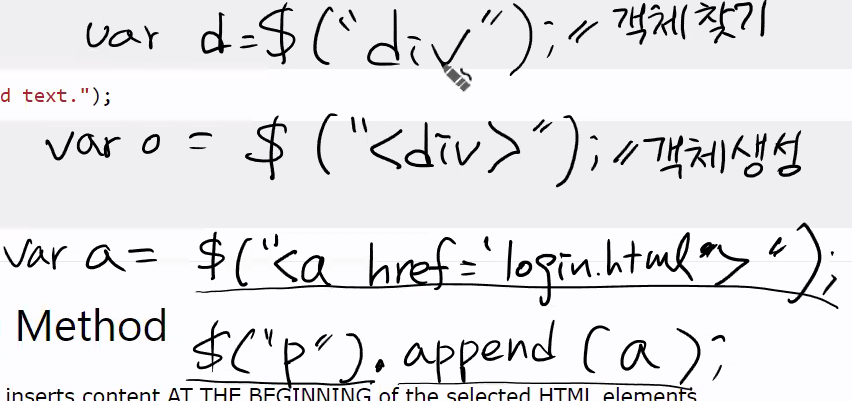 var d=$("div"); // 객체 찾기
d text.");
var o = $("<div>"); // 객체생성
var a= $("<a href='login.html'>");
Method
$("p").append(a);
inserts content AT THE BEGINNING of the selected HTML elements